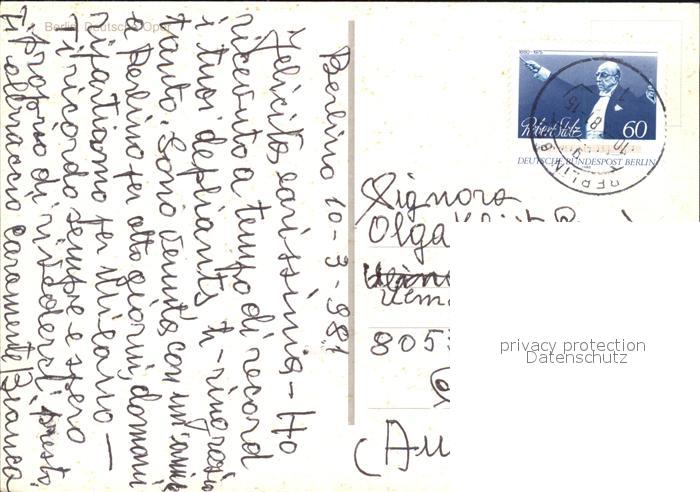 Berlin, Deutsche Oper
Berlino 10-3-981
Felicita carissima - Ho
ricevuto a tempo di record
i tuoi depliants ti ringrazio
tanto. Sono venuta con un'amica
a Berlino per otto giorni, domani
ripartiamo per Milano —
Ti ricordo sempre e spero
proprio di rivederci presto.
Ti abbraccio caramente Bianca
1880-1975
Robert Stolz
60
DEUTSCHE BUNDESPOST BERLIN
BERLIN
Signora
Olga
805
(Au
privacy protection
Datenschutz